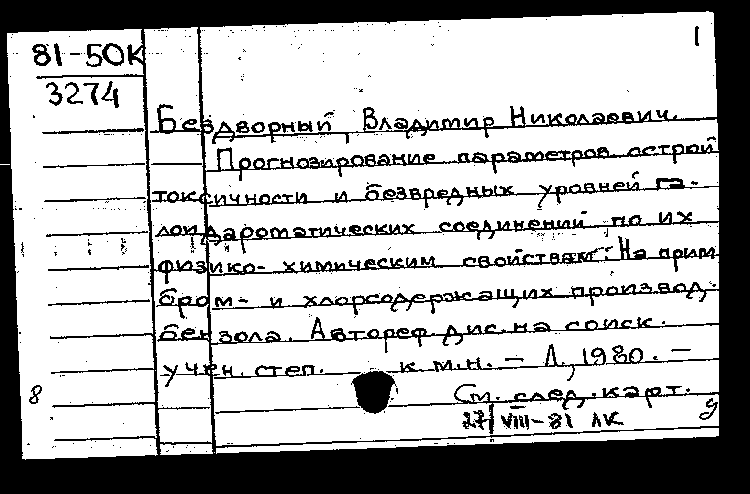 81-50К
3274
1
Бездворный, Владимир Николаевич.
Прогнозирование параметров острой
токсичности и безвредных уровней га-
лоидароматических соединений по их
физико-химическим свойствам: На прим.
бром- и хлорсодержащих производ.
бензола. Автореф. дис. на соиск.
учен. степ. к.м.н. — Л., 1980. —
8
См. след. карт.
27/VIII-81 ЛК